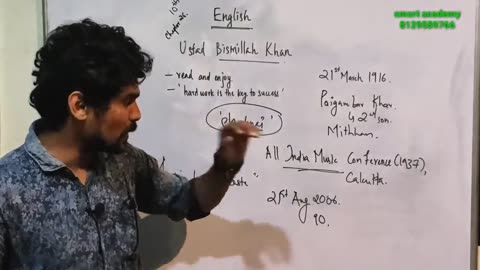 10th
Chapter
English
Ustad Bismillah Khan
– read and enjoy.
– "hard work is the key to success"
21st March 1916.
Paigambar Khan.
2nd son.
Mithhan.
All India Music Conference (1937),
Calcutta.
21st Aug 2006.
90.
smart academy